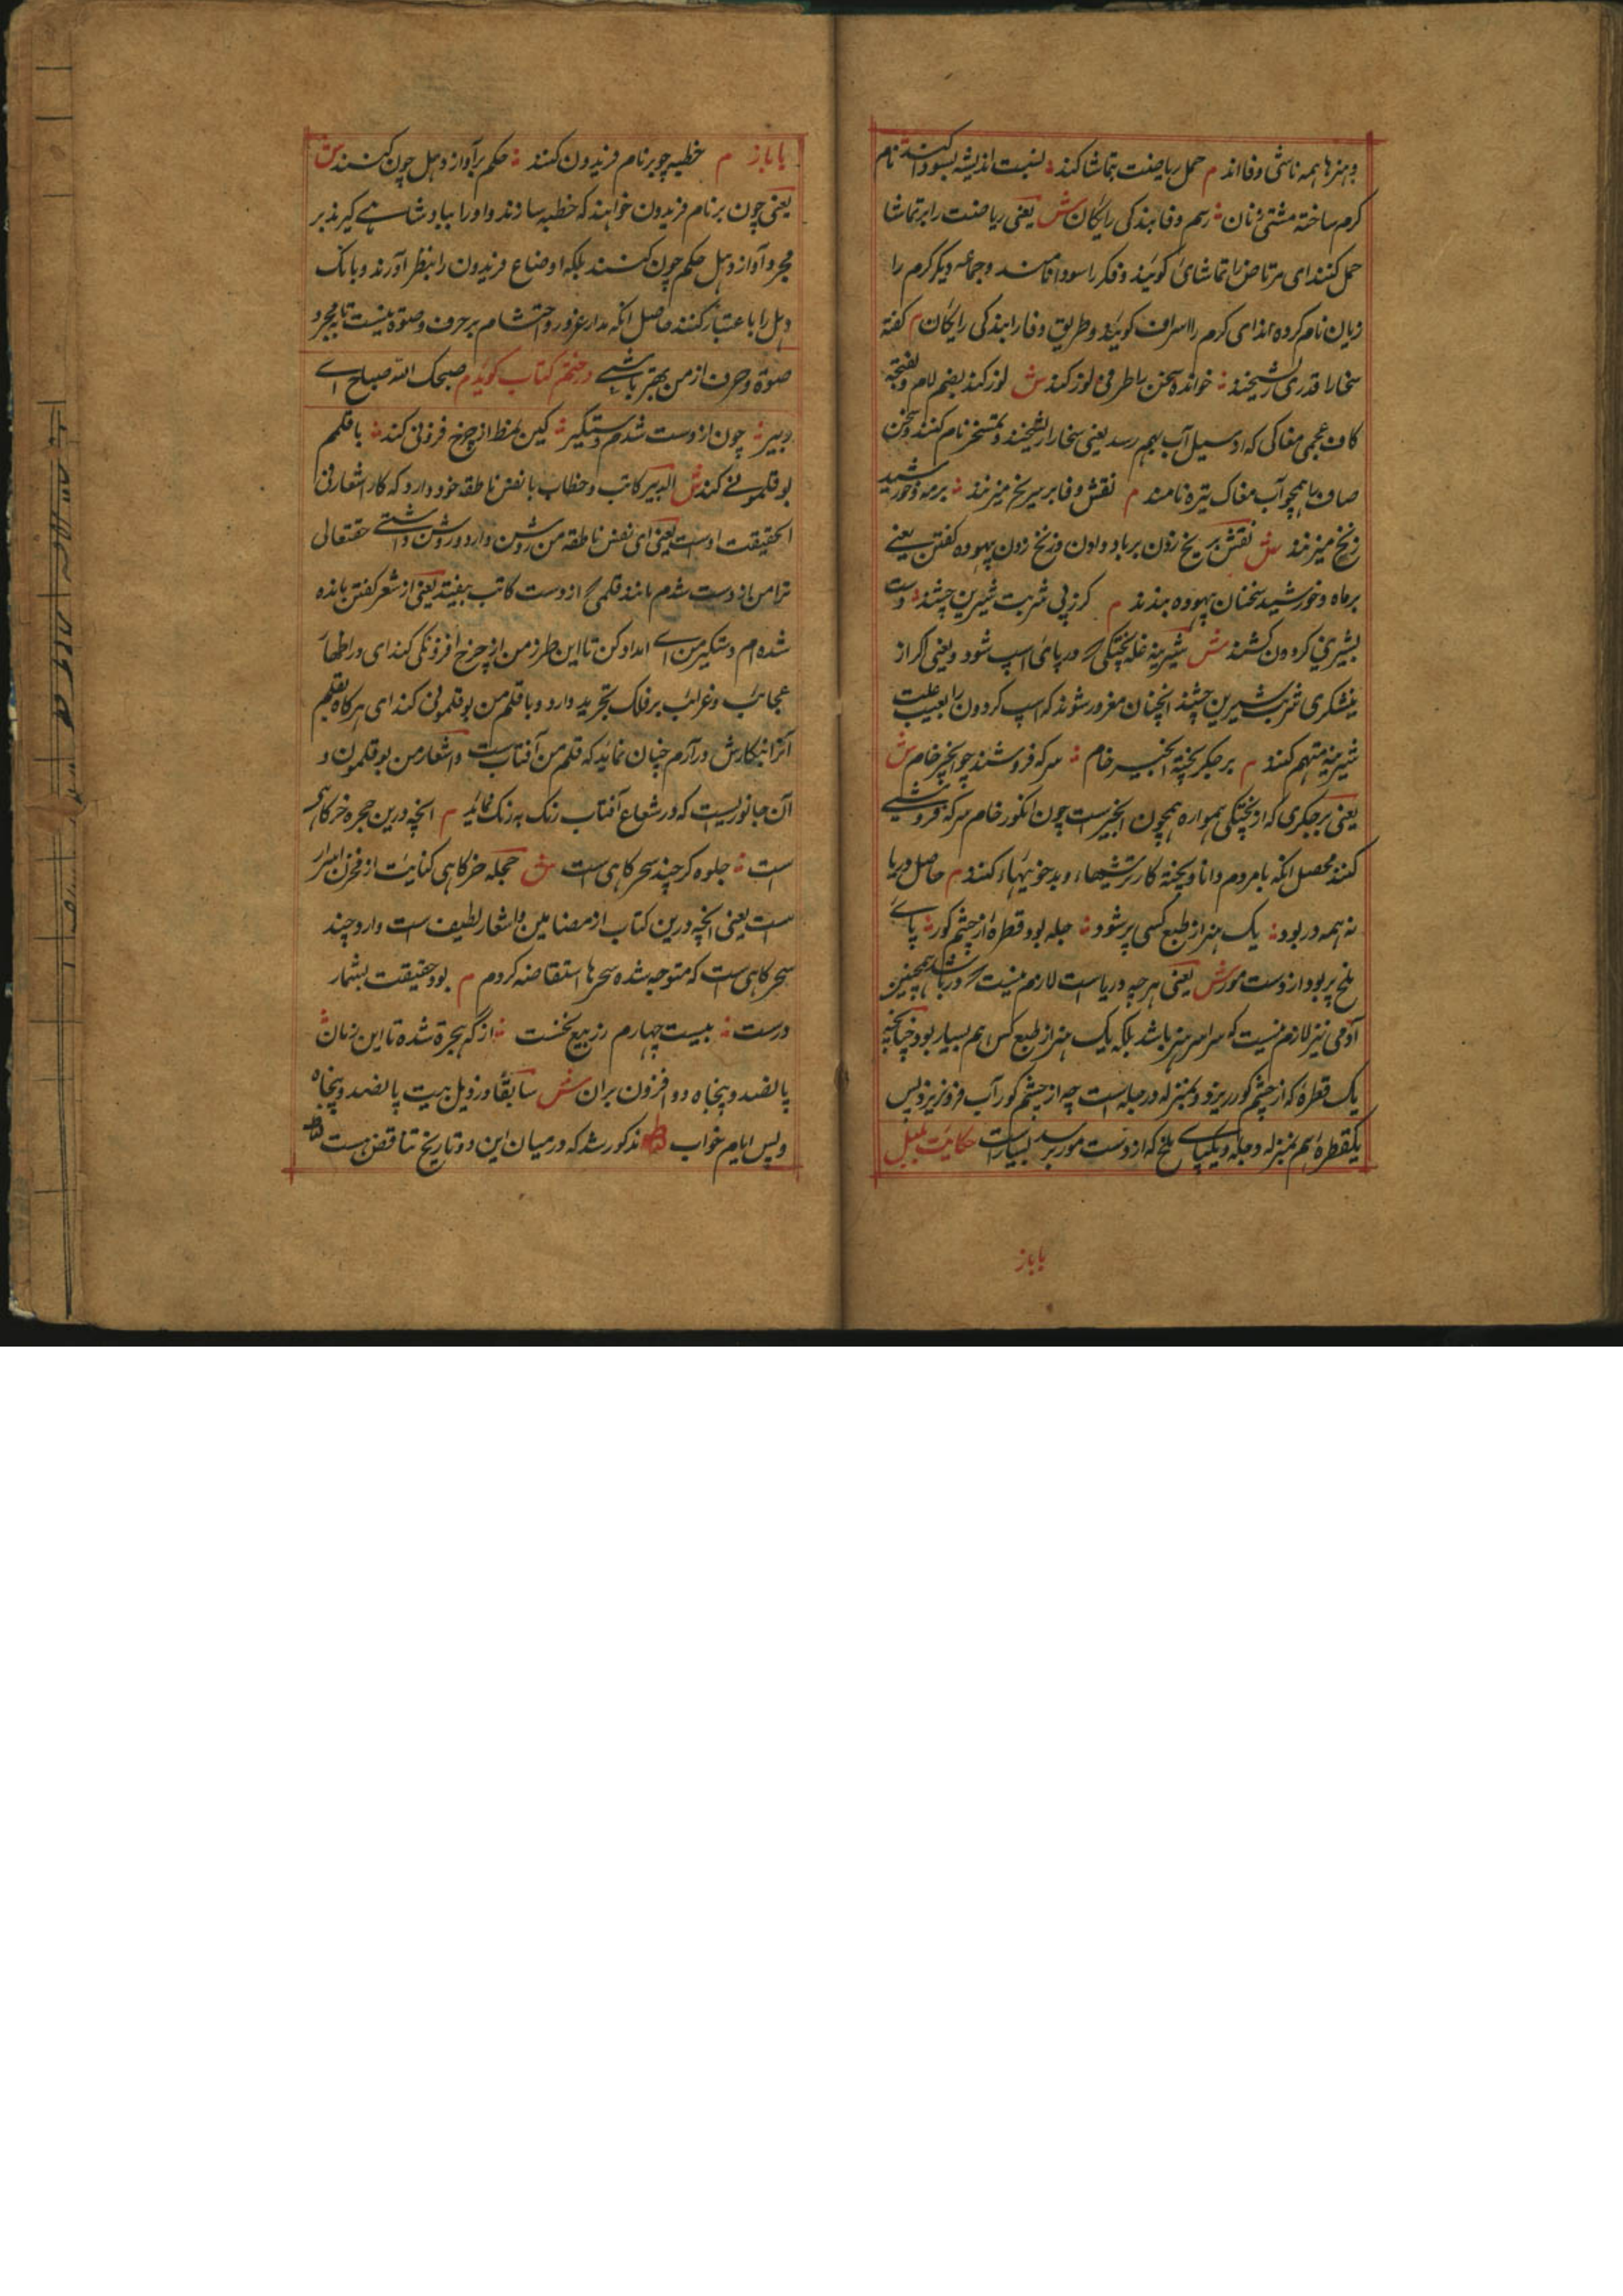 و هنرها همه ناشی وفااند م حمل ریاضت بتماشا کنند نسبت اندیشه بسودا کنند نام
کرم ساخته مشتی زنان رسم وفا بندکی رایکان ش یعنی ریاضت را بر تماشا
حمل کنند ای مرتاض را تماشای کویند و فکر را سودا نامند و جماعه دیکر کرم را
زیان نام کرده اند ای کرم را اسراف کویند و طریق وفا را بندکی رایکان م کفته
سخا را قدری ریشخند خوانده سخن را طرفی لورکند ش لورکند بضم لام و بفتحه
کاف عجمی مغاکی که از سیل آب بهم رسد یعنی سخا را ریشخند و تمسخر نام کنند و سخن
صاف را همچو آب مغاک تیره نامند م نقش وفا بر سر یخ میزنند بر مه و خورشید
زنخ میزنند ش نقش بر یخ زدن بر باد دادن و زنخ زدن بیهوده کفتن یعنی
بر ماه و خورشید سخنان بیهوده بندند م کر ز پی شربت شیرین چشند دست
بشیرینی کردون کشند ش شیرینه غله پختکی که در پای اسپ شود یعنی اکر از
نیشکری شربت شیرین چشند آنچنان مغرور شوند که اسپ کردون را بعیب علت
شیرینه متهم کنند م بر جکر پخته انجیر خام سرکه فروشند چو انجیر خام ش
یعنی بر جکری که از پختکی همواره همچون انجیر است چون انکور خام سرکه فروشی
کنند محصل انکه با مردم دانا و پخته کار ترشیها و بدخوئیها کنند م حاصل دریا
نه همه در بود یک هنر از طبع کسی پر شود دجله بود قطرهٔ از چشم کور پای
ملخ پر بود از دست مور ش یعنی هر چه در دریاست لازم نیست که در باشد همچنین
آدمی نیز لازم نیست که سراسر هنر باشد بلکه یک هنر از طبع کس هم بسیار بود چنانچه
یک قطره که از چشم کور ریزد بمنزله دجله است چه از چشم کور آب فرو نریزد پس
یکقطره هم بمنزله دجله و یکپای ملخ که از دست مور برسد بسیار است حکایت بلبل
یا باز
با باز م خطبه چو بر نام فریدون کنند حکم بر آواز دهل چون کنند ش
یعنی چون بر نام فریدون خواهند که خطبه سازند و او را ببادشاهی کیرند بر
مجرد آواز دهل حکم چون کنند بلکه اوضاع فریدون را بنظر آورند و بانک
دهل را با عتبار کنند حاصل انکه مدار غرور و احتشام بر حرف و صوة نیست تا بمجرد
صوة و حرف از من بهتر باشی در ختم کتاب کوید م صبحک الله صباح ای
دبیر چون از دست شدم دستکیر کین نمط از چرخ فزونی کند با قلمم
بوقلمونی کند ش الدبیر کاتب و خطاب با نفس ناطقه خود دارد که کار اشعار فی
الحقیقت اوست یعنی ای نفس ناطقه من روشن وارد و روشن داشتی حقتعالی
ترا من از دست شدم مانند قلمی که از دست کاتب بیفتد یعنی از شعر کفتن مانده
شده ام دستکیر من ای امداد کن تا این طرز من از چرخ افزونکی کند ای در اظهار
عجائب و غرائب بر فلک تجرید دارد و با قلم من بوقلمونی کند ای هر کاه بقلم
آنرا بنکارش در آرم چنان نماید که قلم من آفتاب است و اشعار من بوقلمون و
آن جانوریست که در شعاع آفتاب رنک به رنک نماید م انچه درین حجره خرکاهی
است جلوه کر چند سحرکاهی است ش حجله خرکاهی کنایت از مخزن اسرار
است یعنی انچه درین کتاب از مضامین و اشعار لطیف است وارد چند
سحرکاهی است که متوجه شده سحرها استفاضه کردم م بود حقیقت بشمار
درست بیست چهارم ز ربیع نخست از که هجرة شده تا این زمان
پانصد و پنجاه و دو افزون بران ش سابقا در ذیل بیت پانصد و پنجاه
و پس ایام خواب مذکور شد که در میان این دو تاریخ تناقض هست